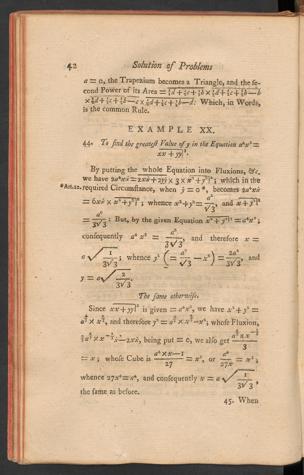 42 Solution of Problems
a = 0, the Trapezium becomes a Triangle, and the se-
cond Power of its Area = ½d+½c+½b × ½d+½c+½b—b
× ½d+½c+½b—c × ½d+½c+½b—d: Which, in Words,
is the common Rule.
EXAMPLE XX.
44. To find the greatest Value of y in the Equation a⁴x² =
xx + yy|³.
By putting the whole Equation into Fluxions, &c.
we have 2a⁴xẋ = 2xẋ + 2yẏ × 3 × x²+y²|²; which in the
*Art.22. required Circumstance, when ẏ = 0 *, becomes 2a⁴xẋ
= 6xẋ × x²+y²|²; whence x²+y² = a²/√3, and x²+y²|³
= a⁶/3√3: But, by the given Equation x²+y²|³ = a⁴x²;
consequently a⁴x² = a⁶/3√3, and therefore x =
a√1/3√3; whence y² (= a²/√3 — x²) = 2a²/3√3, and
y = a√2/3√3.
The same otherwise.
Since xx + yy|³ is given = a⁴x², we have x² + y² =
whose Fluxion,
being put = 0, we also get
= x; whose Cube is
whence 27x⁴ = a⁴, and consequently x = a√1/3√3,
the same as before.
45. When